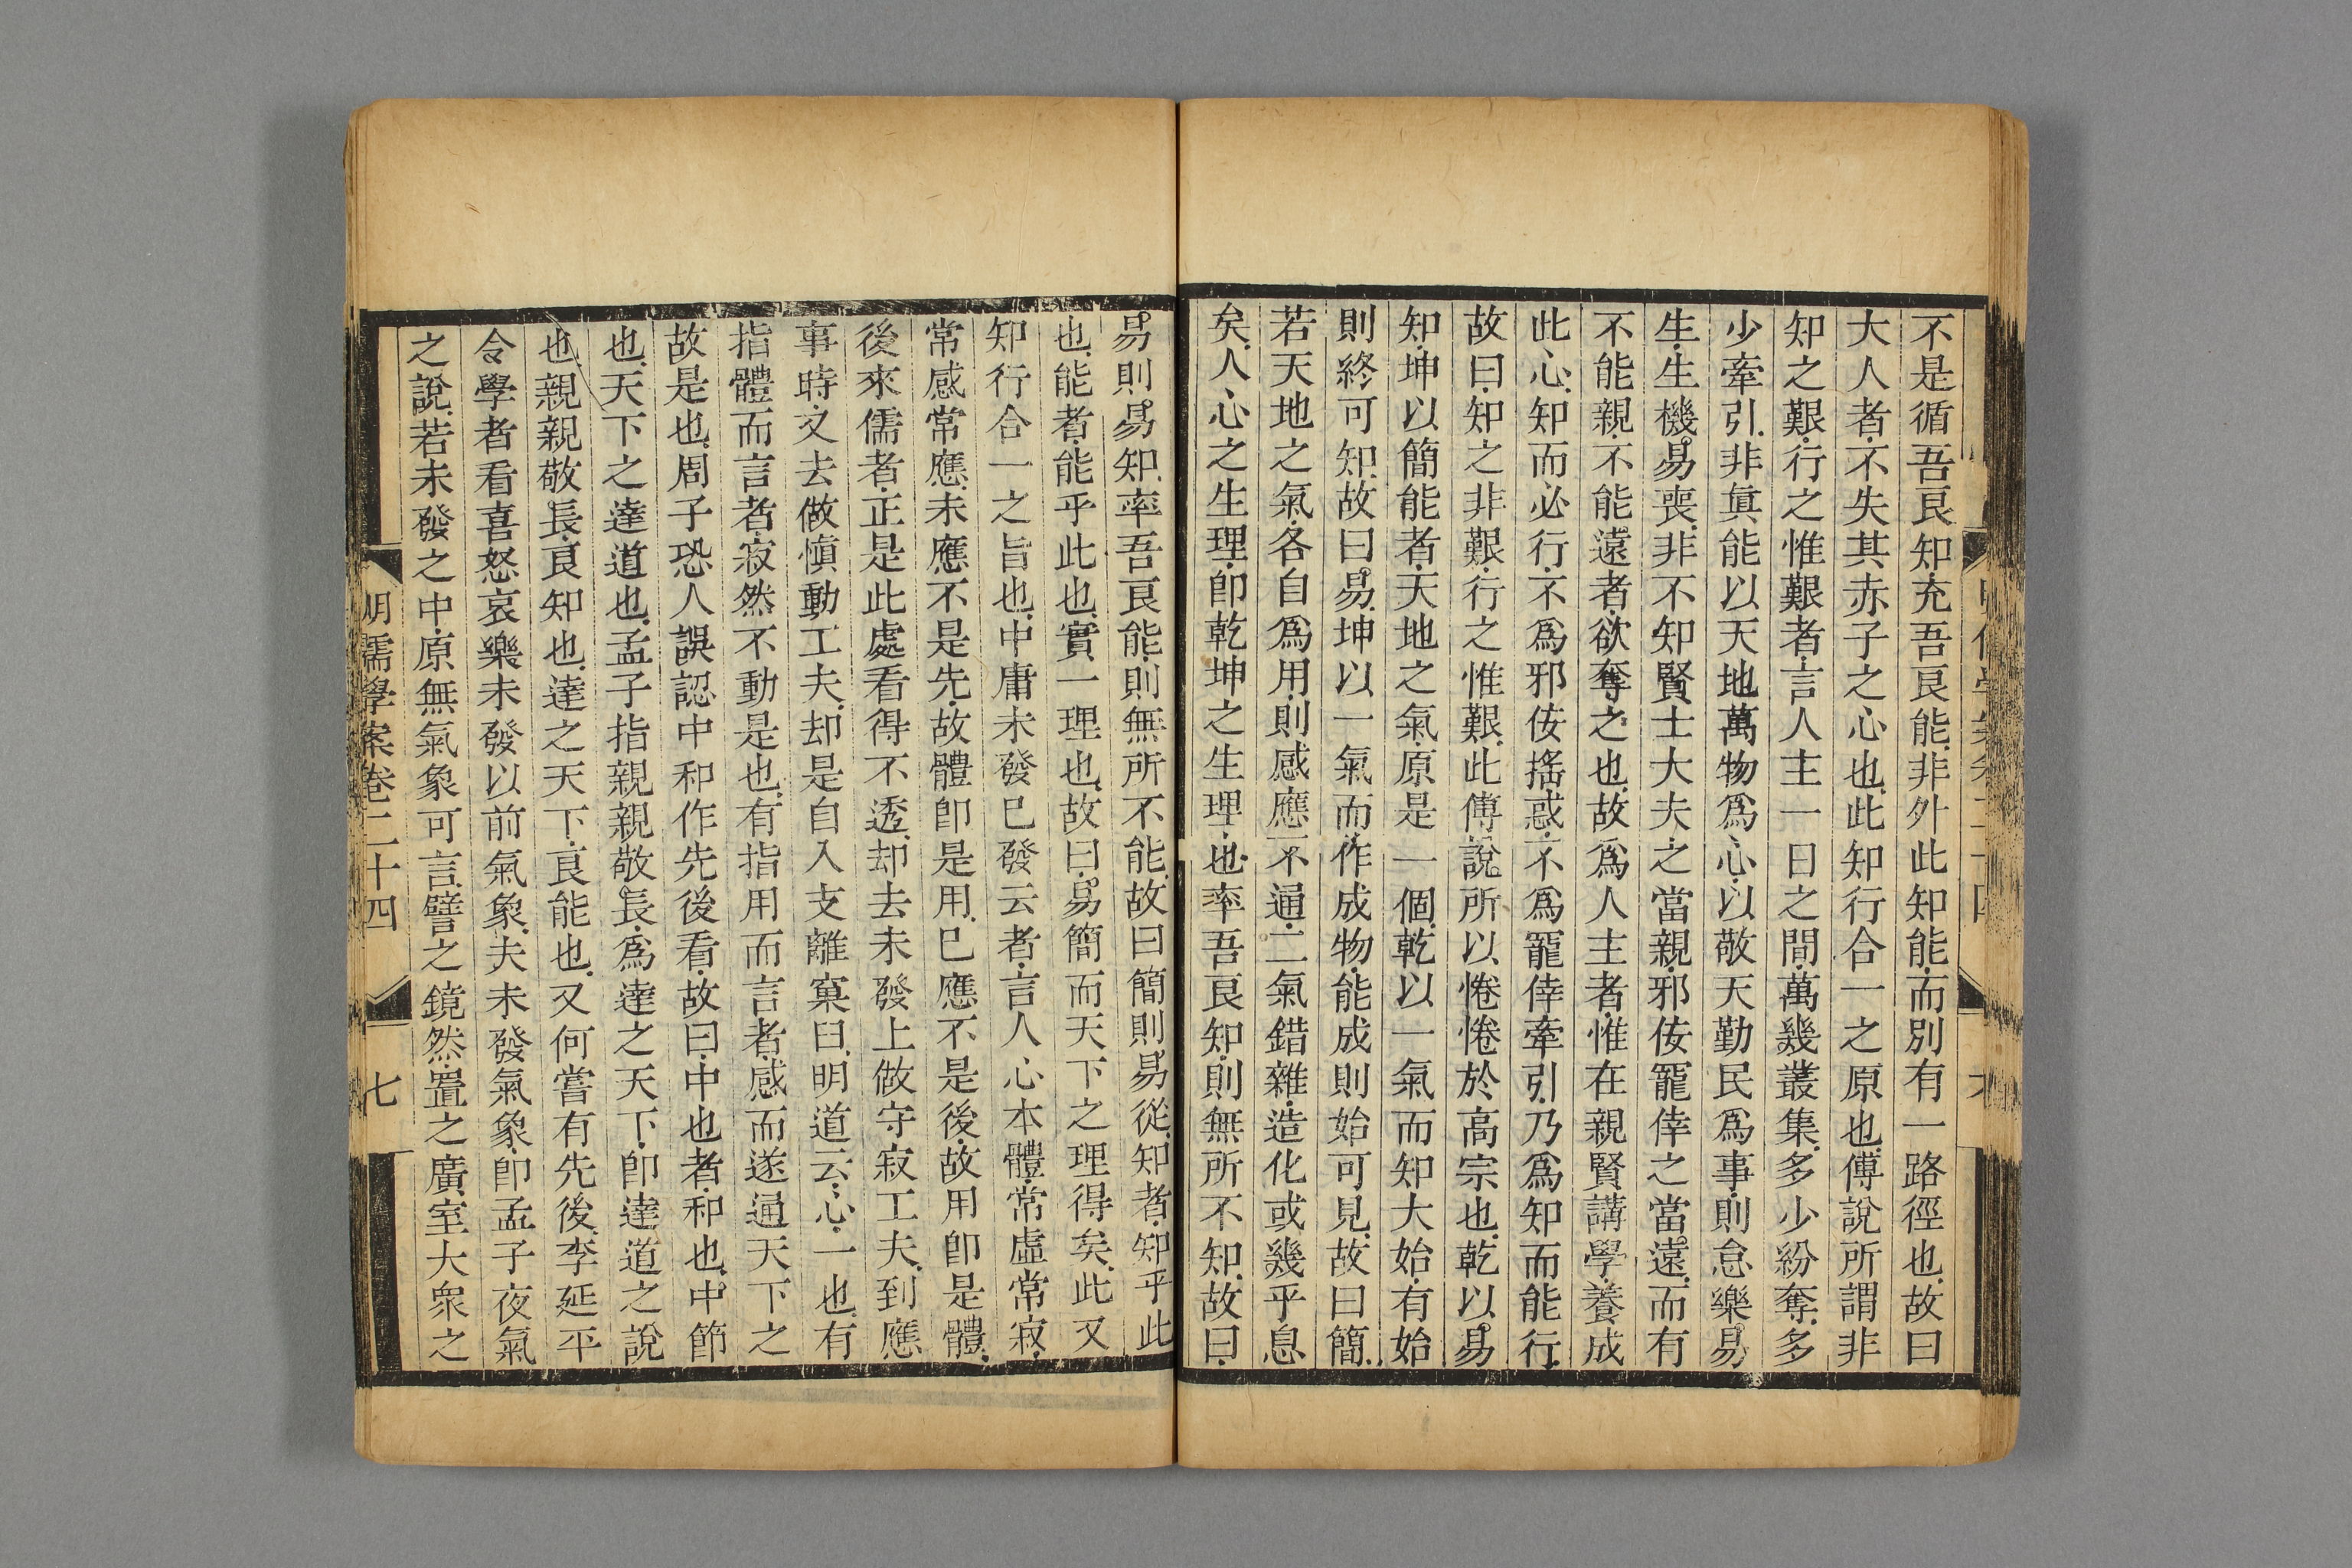 不是循吾良知充吾良能.非外此知能.而別有一路徑也.故曰
大人者.不失其赤子之心也.此知行合一之原也.傅說所謂非
知之艱.行之惟艱者.言人主一日之間.萬幾叢集.多少紛奪.多
少牽引.非眞能以天地萬物爲心.以敬天勤民爲事.則怠樂易
生.生機易喪.非不知賢士大夫之當親.邪佞寵倖之當遠.而有
不能親.不能遠者.欲奪之也.故爲人主者.惟在親賢講學.養成
此心.知而必行.不爲邪佞搖惑.不爲寵倖牽引.乃爲知而能行.
故曰.知之非艱.行之惟艱.此傅說所以惓惓於高宗也.乾以易
知.坤以簡能者.天地之氣.原是一個.乾以一氣而知大始.有始
則終可知.故曰易.坤以一氣而作成物.能成則始可見.故曰簡.
若天地之氣.各自爲用.則感應不通.二氣錯雜.造化或幾乎息
矣.人心之生理.卽乾坤之生理也.率吾良知.則無所不知.故曰.
易則易知.率吾良能.則無所不能.故曰簡則易從.知者.知乎此
也.能者.能乎此也.實一理也.故曰.易簡而天下之理得矣.此又
知行合一之旨也.中庸未發已發云者.言人心本體.常虛常寂.
常感常應.未應不是先.故體卽是用.已應不是後.故用卽是體.
後來儒者.正是此處看得不透.却去未發上做守寂工夫.到應
事時.又去做愼動工夫.却是自入支離窠臼.明道云.心一也.有
指體而言者.寂然不動是也.有指用而言者.感而遂通天下之
故是也.周子恐人誤認中和作先後看.故曰.中也者.和也.中節
也.天下之達道也.孟子指親親敬長.爲達之天下.卽達道之說
也.親親敬長.良知也.達之天下.良能也.又何嘗有先後.李延平
令學者看喜怒哀樂未發以前氣象.夫未發氣象.卽孟子夜氣
之說.若未發之中.原無氣象可言.譬之鏡然.置之廣室大衆之
明儒學案卷二十四
七